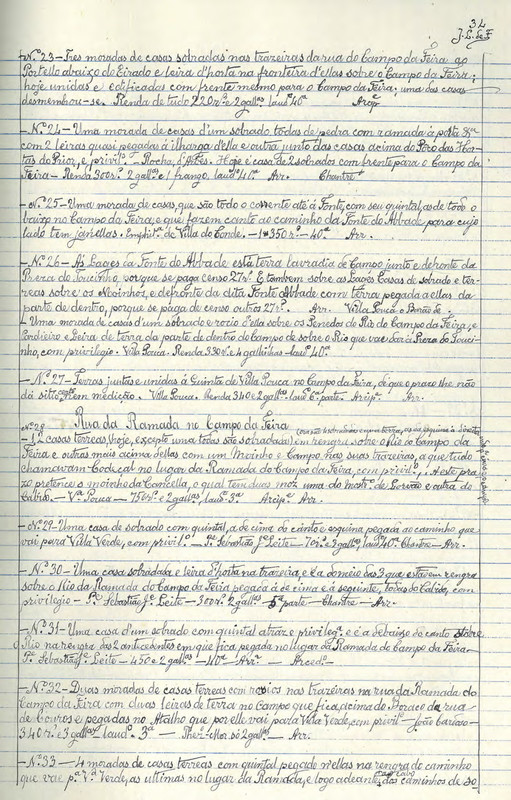 34
J. L. de F.
-N.º 23-Tres moradas de casas sobradas nas trazeiras da rua do Campo da Feira ao
Portello abaixo do Eirado e leira d'horta na fronteira d'ellas sobre o Campo da Feira;
hoje unidas e edificadas com frente mesmo para o Campo da Feira; uma das casas
desmembou-se. Renda de tudo 220 r.s e 2 gall.as laud.º 40ª Arcip.
-N.º 24- Uma morada de casas d'um sobrado todas de pedra com ramada á porta
com 2 leiras quasi pegadas á ilharga d'ella e outra junto das casas acima do Rocio das Hor-
tas do Prior, e privil.º - Rocha, d'Arões. Hoje é casa de 2 sobrados com frente para o Campo da
Feira - Renda 300 r.s 2 gall.as e 1 frango, laud.º 40ª Arc. Chantre
-N.º 25-Uma morada de casas, que são todo o corrente até á Fonte, com seu quintal, as de todo o
baixo no Campo da Feira, e que fazem canto ao caminho da Fonte do Abbade para cujo
lado tem janellas. Emphit.ª de Villa do Conde. - 1$350 r.s - 40ª - Arr.
-N.º 26 - As Lages da Fonte do Abbade está terra lavradia de Campo junto e defronte da
Preza do Toucinho, porque se paga censo 27 r.s E tambem sobre as Lages Casas de sobrado e ter-
reas sobre os Moinhos, e defronte da dita Fonte Abbade com terra pegada a ellas da
parte de dentro, porque se paga de censo outros 27 r.s Arr. Villa Pouca o Barão de.
- Uma morada de casas d'um sobrado e rocio d'ella sobre os Penedos do Rio do Campo da Feira, e
Pardieiro e Leira de terra da parte de dentro do Campo de sobre o Rio que vae dar á Preza do Touci-
nho, com privilegio. Villa Pouca. Renda 330 r.s e 4 gallinhas - laud.º 40ª.
-N.º 27 - Terras juntas e unidas á Quinta de Villa Pouca no Campo da Feira, de que o prazo lhe não
dá sitio certo nem medição. Villa Pouca. Renda 340 e 2 gall.as laud.º 6ª parte. Arcip. Arr.
N.º 28 Rua da Ramada no Campo da Feira
-12 casas terreas (hoje, excepto uma todas são sobradadas) em rengra sobre o Rio do Campo da
Feira e outras mais acima d'ellas com um Moinho e Campo nas suas trazeiras, a que tudo
chamavam Codeçal no lugar da Ramada do Campo da Feira, com privil.º. A este pra-
zo pretence o moinho da Cancella, o qual tem duas moz uma do Mostr.º de Lorvão e outra do
Cabido. - V.ª Pouca - 750 r.s e 2 gall.as, laud.º 3ª Arcip.e Arr.
-N.º 29-Uma casa de sobrado com quintal, a de cima do canto e esquina pegada ao caminho que
vai para Villa Verde, com privil.º - P.e Sebastião J.e Leite - 70 r.s e 3 gall.as, laud.º 40ª. Chantre - Arr.
-N.º 30 - Uma casa sobradada e leira d'horta na trazeira, e é a do meio das 3 que estão em rengra
sobre o Rio da Ramada do Campo da Feira pegada á de cima e á seguinte, todas do Cabido, com
privilegio - P.e Sebastião J.e Leite - 300 r.s 2 gall.as 5ª parte - Chantre - Arr.
-N.º 31-Uma casa d'um sobrado com quintal atraz e privileg.º e é a debaixo do canto sobre
o Rio na rengra das 2 antecedentes em que fica pegada no lugar da Ramada do Campo da Feira-
P.e Sebastião J.e Leite - 450 e 2 gall.as - 40ª Arr. - Arced.º
-N.º 32- Duas moradas de casas terreas com rocios nas trazeiras na rua da Ramada do
Campo da Feira com duas leiras de terra no Campo que fica acima do Buraco da rua
de Couros e pegadas no Atalho que por elle vai para Villa Verde, com privil.º - João Cardoso-
340 r.s e 3 gall.as laud.º 3ª - Thez.º-Mor só 2 gall.as - Arr.
-N.º 33 - 4 moradas de casas terreas com quintal pegado n'ellas na rengra do caminho
que vae p.ª V.ª Verde, as ultimas no lugar da Ramada, e logo adeante dos caminhos de so-